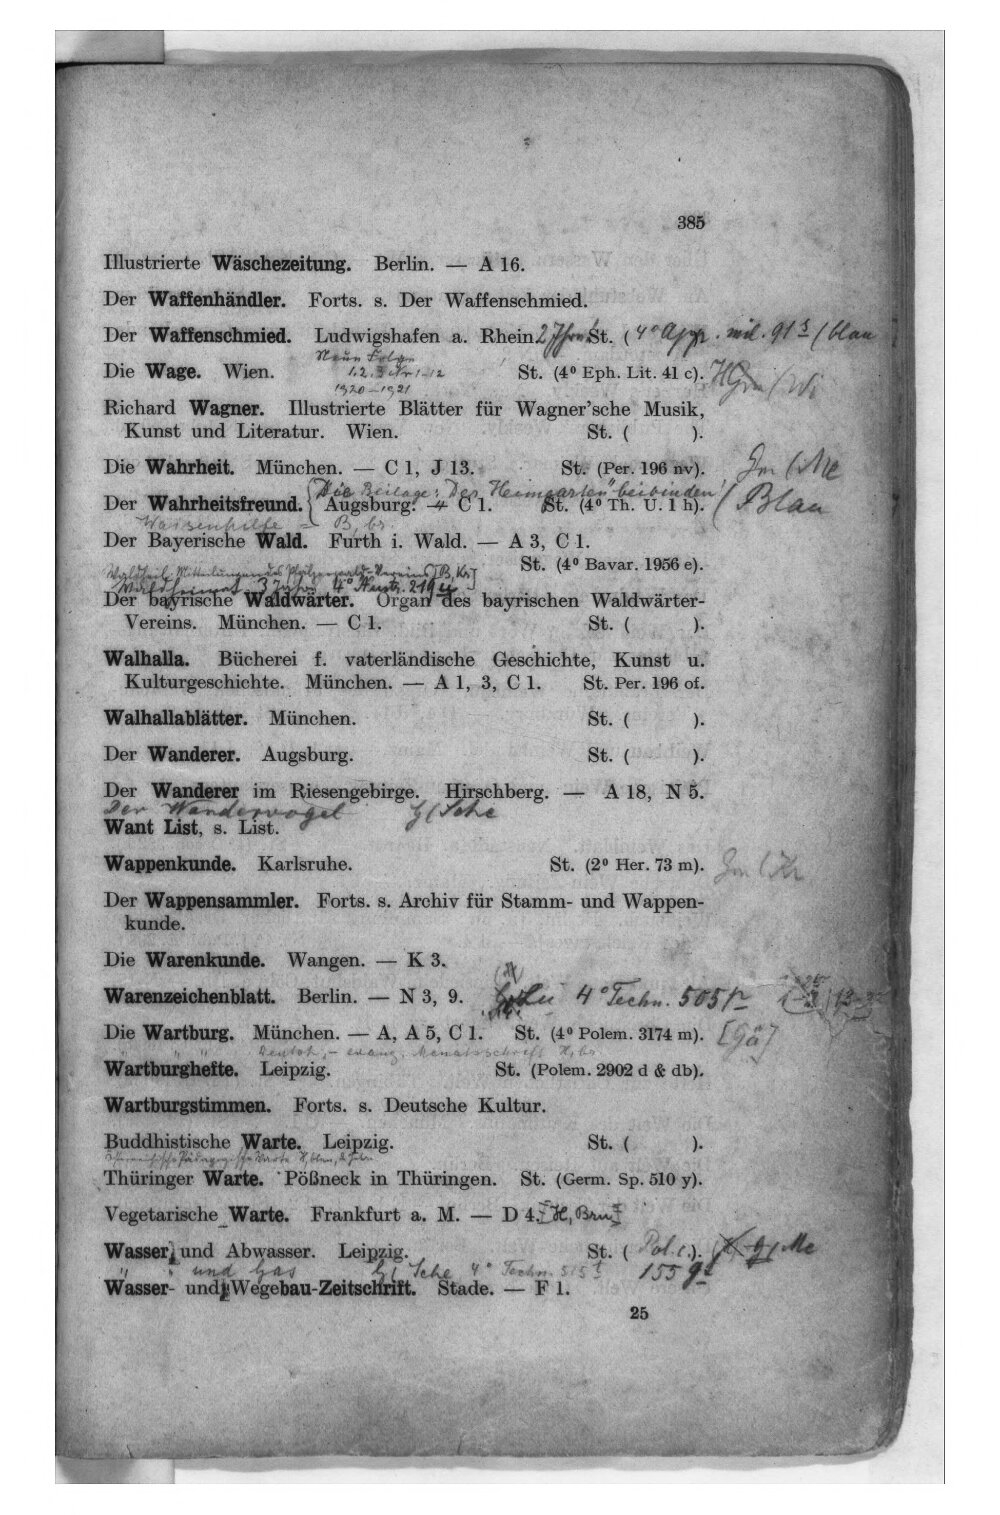 385
Illustrierte Wäschezeitung. Berlin. — A 16.
Der Waffenhändler. Forts. s. Der Waffenschmied.
Der Waffenschmied. Ludwigshafen a. Rhein. St. (4º App. mil. 91 s (blau
Neue Folge
Die Wage. Wien. 1.2.3 Nr 1-12 St. (4º Eph. Lit. 41 c).
1920-1921
Richard Wagner. Illustrierte Blätter für Wagner'sche Musik,
Kunst und Literatur. Wien. St. ( ).
Die Wahrheit. München. — C 1, J 13. St. (Per. 196 nv).
Die Beilage: Der Heimgarten" beibinden!
Der Wahrheitsfreund. Augsburg. — C 1. St. (4º Th. U. 1 h). (Blau
Waisenhilfe = B, br.
Der Bayerische Wald. Furth i. Wald. — A 3, C 1.
St. (4º Bavar. 1956 e).
Mitteilungen des Pfälzerwald-Vereins [B, Kr]
Waldheimat. 3 Jahre 4º
Der bayrische Waldwärter. Organ des bayrischen Waldwärter-
Vereins. München. — C 1. St. ( ).
Walhalla. Bücherei f. vaterländische Geschichte, Kunst u.
Kulturgeschichte. München. — A 1, 3, C 1. St. Per. 196 of.
Walhallablätter. München. St. ( ).
Der Wanderer. Augsburg. St. ( ).
Der Wanderer im Riesengebirge. Hirschberg. — A 18, N 5.
Der Wandervogel G/Sche
Want List, s. List.
Wappenkunde. Karlsruhe. St. (2º Her. 73 m).
Der Wappensammler. Forts. s. Archiv für Stamm- und Wappen-
kunde.
Die Warenkunde. Wangen. — K 3.
Warenzeichenblatt. Berlin. — N 3, 9. 4º Techn. 505
Die Wartburg. München. — A, A 5, C 1. St. (4º Polem. 3174 m). [Gä]
Deutsch-evang. Monatsschrift H, br
Wartburghefte. Leipzig. St. (Polem. 2902 d & db).
Wartburgstimmen. Forts. s. Deutsche Kultur.
Buddhistische Warte. Leipzig. St. ( ).
Österreichische Pädagogische Warte H, blau,
Thüringer Warte. Pößneck in Thüringen. St. (Germ. Sp. 510 y).
Vegetarische Warte. Frankfurt a. M. — D 4. [H, Bru]
Wasser und Abwasser. Leipzig. St. ( Pol. c.). g/Me
" und Gas G/Sche 4º Techn. 515 t 155 g
Wasser- und Wegebau-Zeitschrift. Stade. — F 1.
25